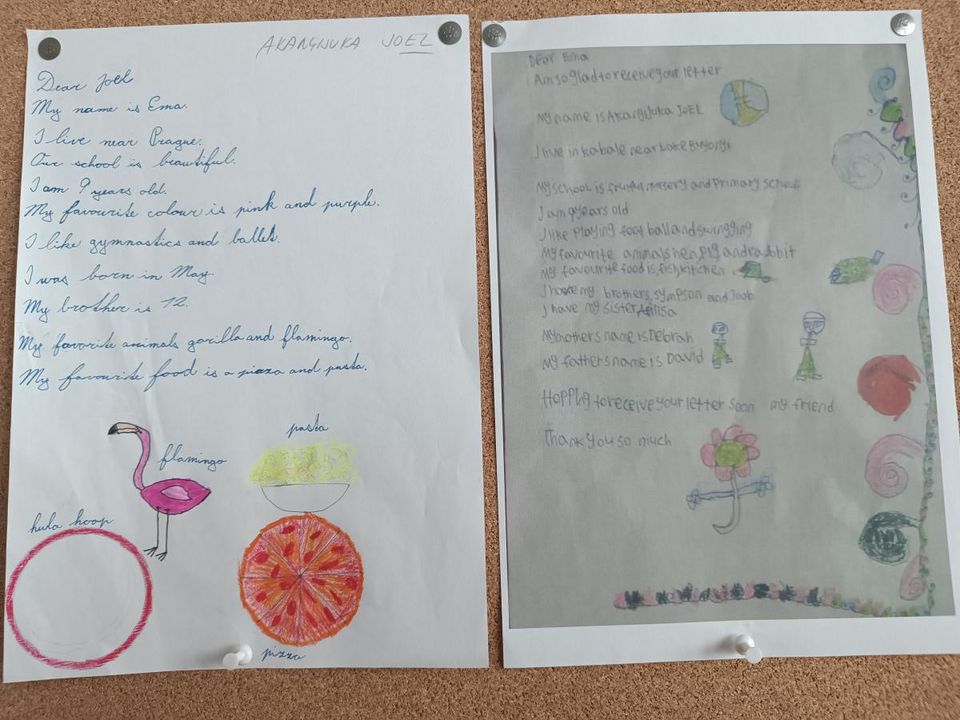 AKANGWUKA JOEL
Dear Joel
My name is Ema.
I live near Prague.
Our school is beautiful.
I am 9 years old.
My favourite colour is pink and purple.
I like gymnastics and ballet.
I was born in May.
My brother is 12.
My favorite animals gorilla and flamingo.
My favourite food is a pizza and pasta.
flamingo
pasta
hula hoop
pizza
Dear Ema
i Am so glad to receive your letter
My name is AKangwuka JOEL
I live in kabale near Lake Bunyonyi
My school is nursery and Primary school
I am 9 years old
I like Playing foot ball and swinging
My favourite animals hen, pig and rabbit
My favourite food is fish, kitchen
I have my brothers, sympson and Joab
I have my sister
My mothers name is Debrah
My fathers name is David
Hopping to receive your letter soon my friend
Thank you so much